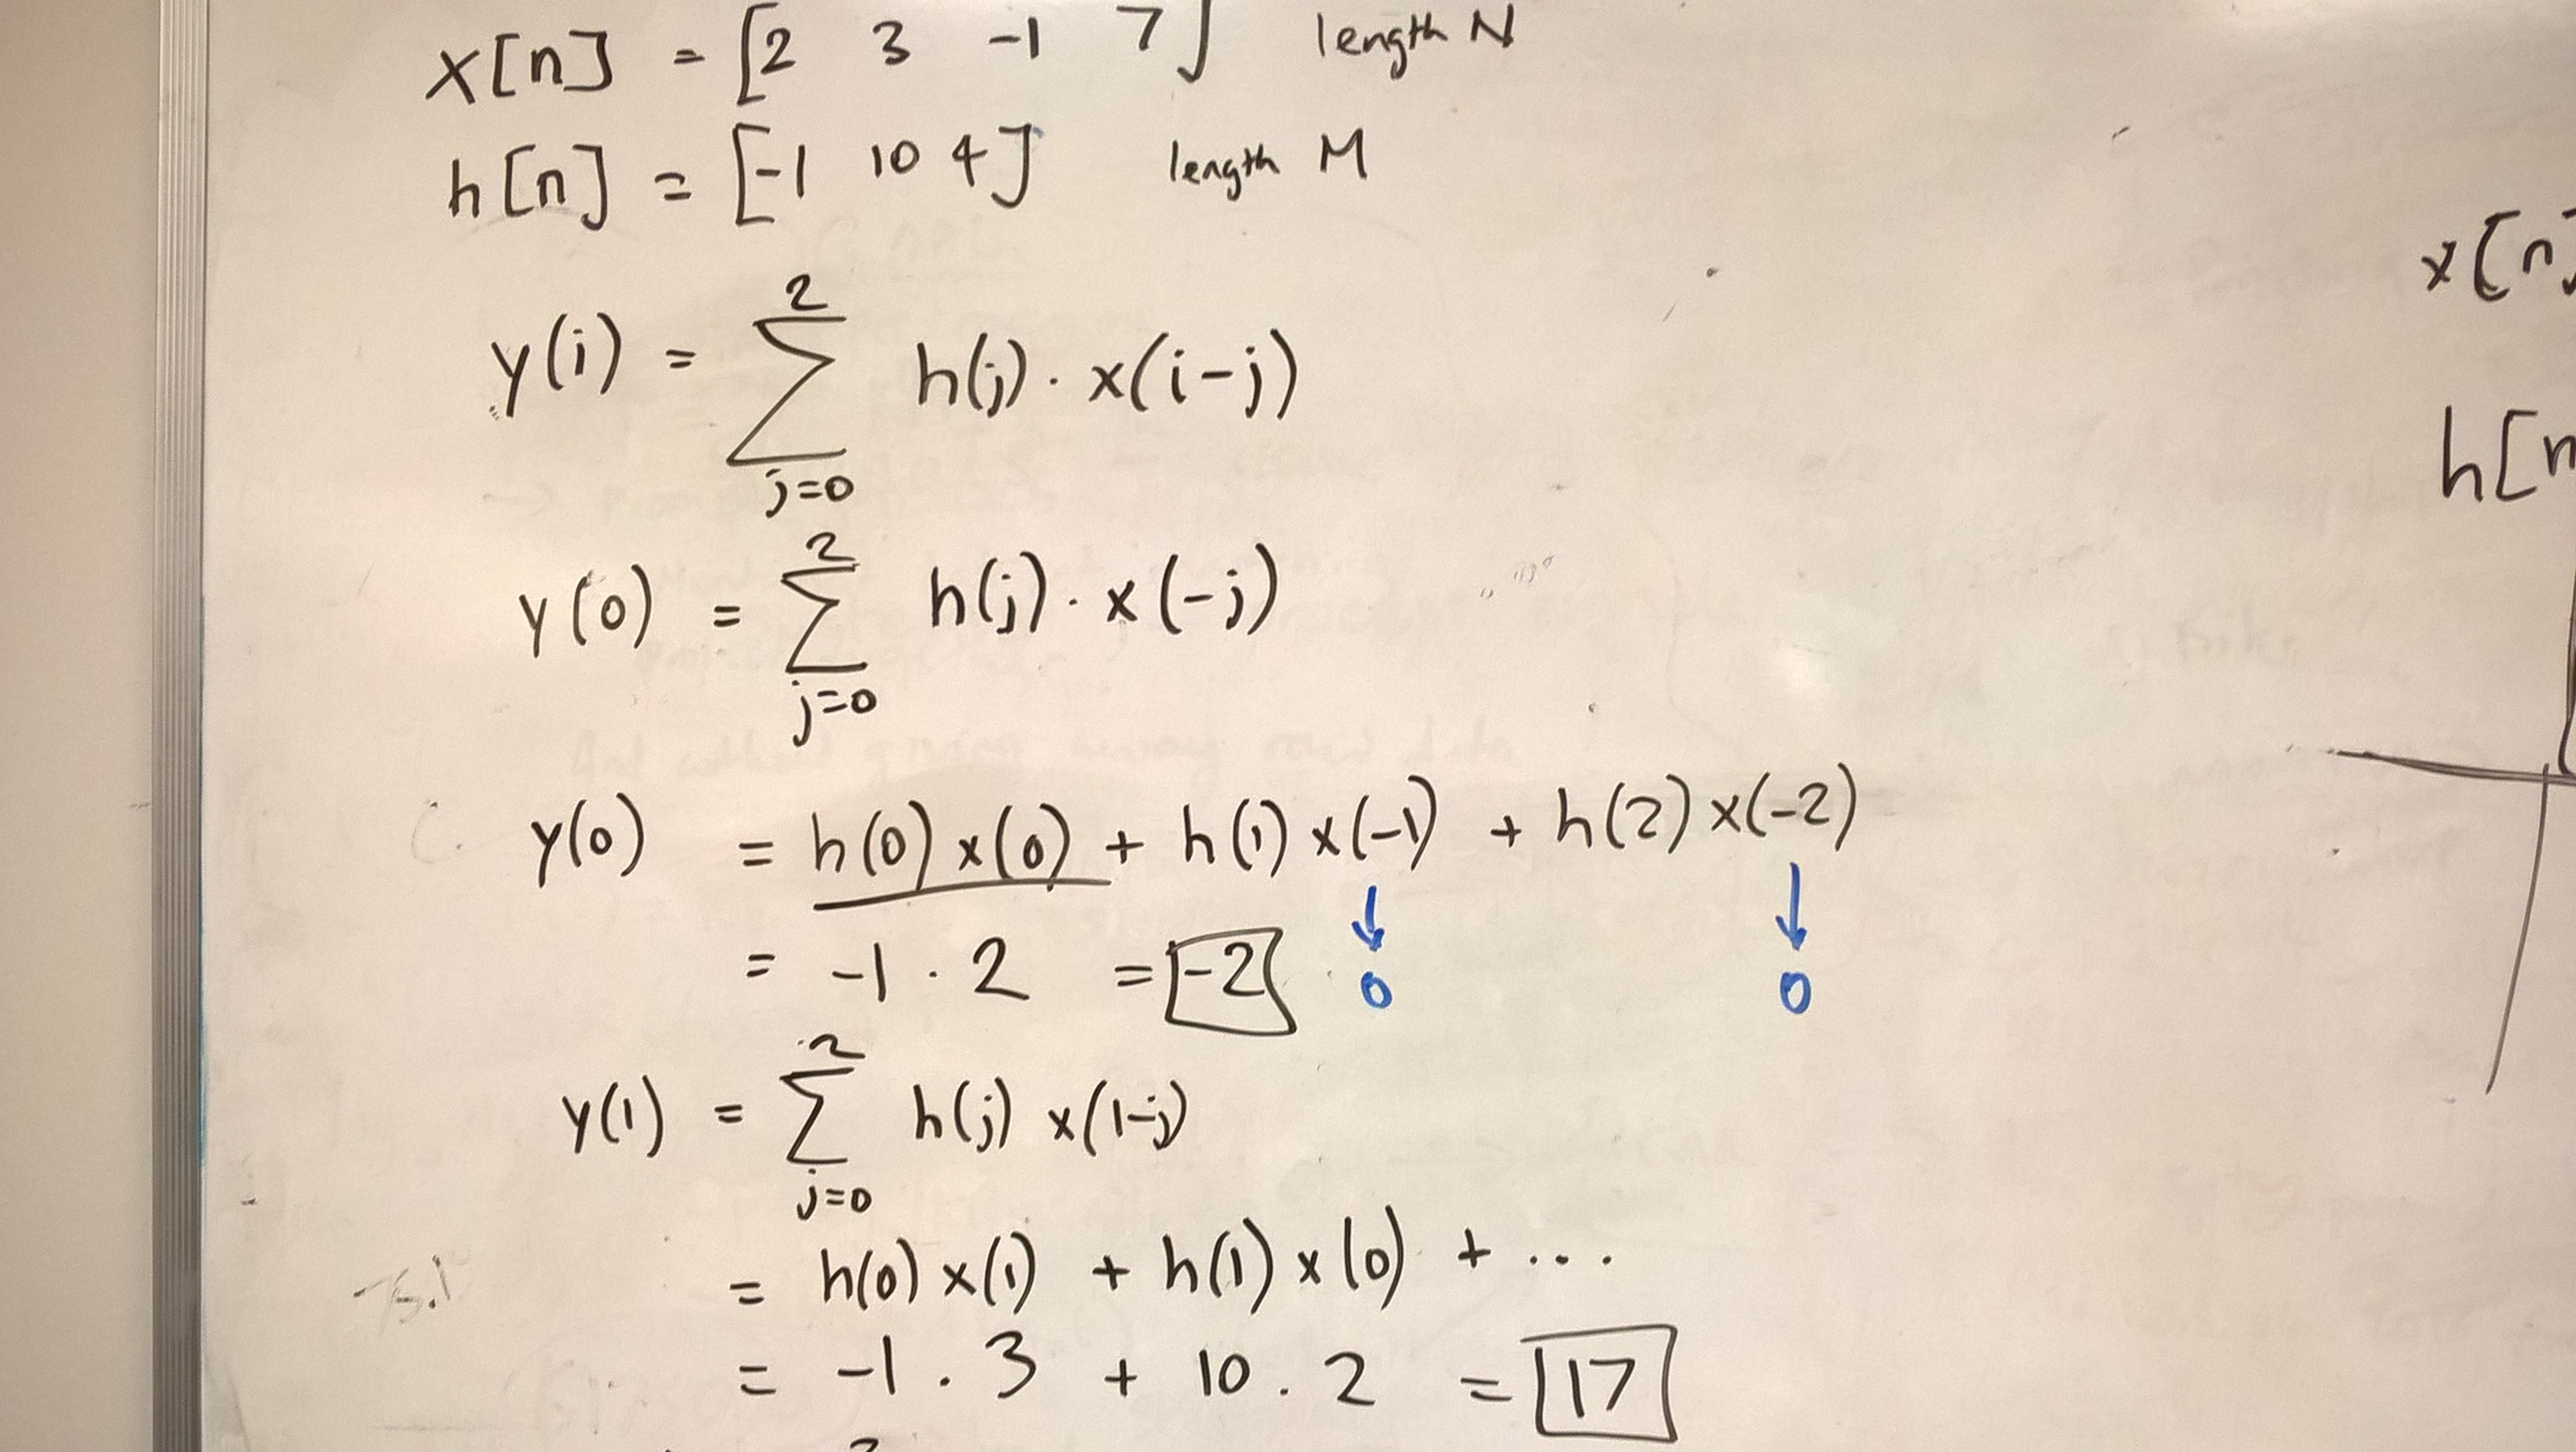 x[n] = [2 3 -1 7] length N
h[n] = [-1 10 4] length M
x[n]
y(i) = 2 ∑ j=0 h(j) · x(i-j)
h[n
y(0) = 2 ∑ j=0 h(j) · x(-j)
y(0) = h(0) x(0) + h(1) x(-1) + h(2) x(-2)
↓ ↓
= -1 · 2 = -2 0 0
y(1) = 2 ∑ j=0 h(j) x(1-j)
= h(0) x(1) + h(1) x(0) + ...
= -1 . 3 + 10 . 2 = 17